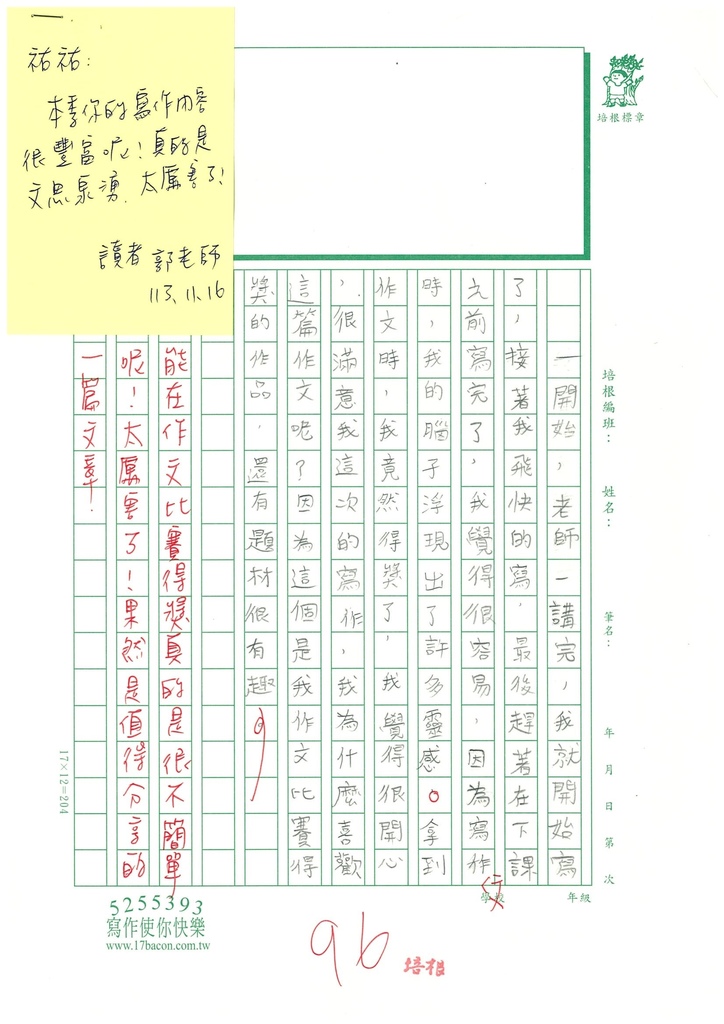 祐祐:
本季你的寫作內容
很豐富呢!真的是
文思泉湧,太厲害了!
讀者 郭老師
113.11.16
培根標章
培根編班:
姓名:
筆名:
年 月 日 第 次
一開始,老師一講完,我就開始寫
了,接著我飛快的寫,最後趕著在下課
之前寫完了,我覺得很容易,因為寫作文
時,我的腦子浮現出了許多靈感。拿到
作文時,我竟然得獎了,我覺得很開心
,很滿意我這次的寫作,我為什麼喜歡
這篇作文呢?因為這個是我作文比賽得
獎的作品,還有題材很有趣
能在作文比賽得獎真的是很不簡單
呢!太厲害了!果然是值得分享的
一篇文章!
17×12=204
學校
年級
5255393
寫作使你快樂
www.17bacon.com.tw
96
培根